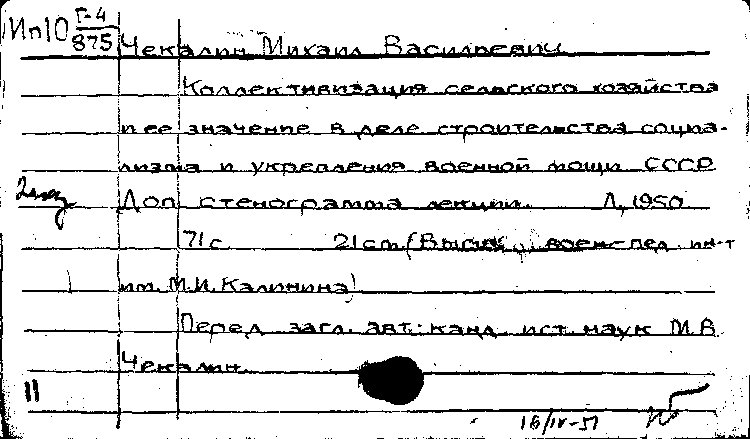 Ип10 Г-4
875 Чекалин Михаил Васильевич
Коллективизация сельского хозяйства
и ее значение в деле строительства социа-
лизма и укрепления военной мощи СССР
2 экз Доп. стенограмма лекции. Л, 1950
71 с. 21 см. (Высш. воен-пед. ин-т
им. М.И. Калинина)
Перед загл. авт.: канд. ист. наук М.В.
Чекалин.
11
16/IV-51